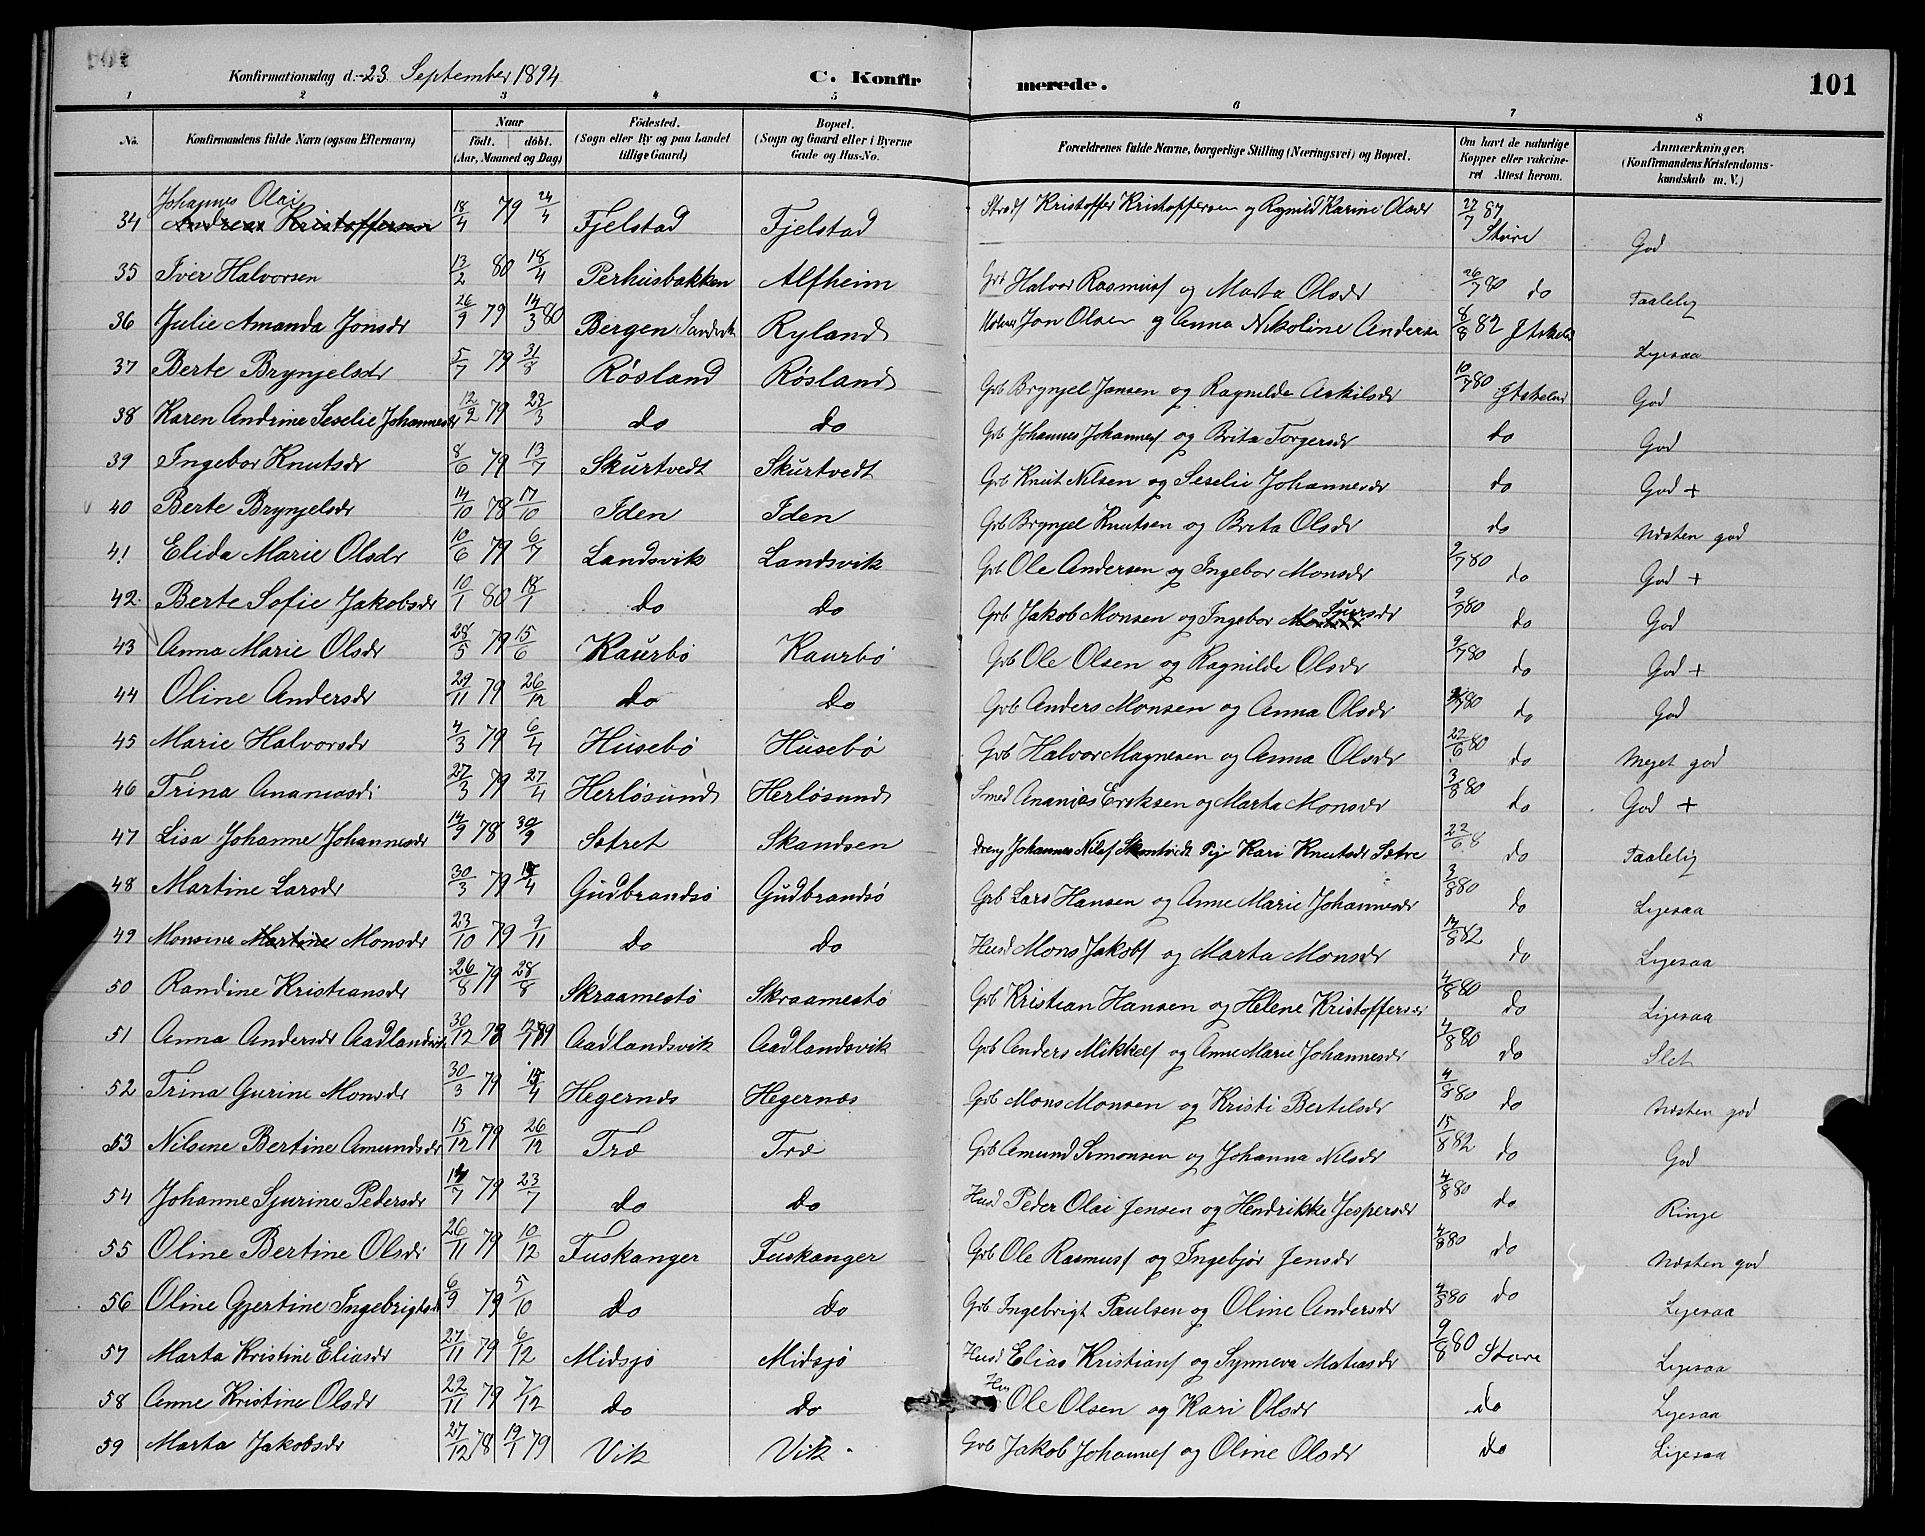 Konfirmationsdag d. 23 September 1894 C. Konfirmerede. 101
1 2 3 4 5 6 7 8
No. Konfirmandens fulde Navn (ogsaa Efternavn) Naar födt. döbt. (Aar, Maaned og Dag) Födested. (Sogn eller By og paa Landet tillige Gaard) Bopæl. (Sogn og Gaard eller i Byerne Gade og Hus-No. Forældrenes fulde Navne, borgerlige Stilling (Næringsvei) og Bopæl. Om havt de naturlige Kopper eller vakcineret Attest herom. Anmærkninger. (Konfirmandens Kristendomskundskab m. V.)
Johannes Olai
34 Andreas Kristoffersen 18/4 79 24/4 Fjelstad Fjelstad Kristoffer Kristoffersen og Ragnild Karine Olsdr 27/7 87 Støre God
35 Iver Halvorsen 13/2 80 18/4 Perhusbakken Alfheim Grb Halvor Rasmuss og Marta Olsdr 26/7 80 do Taalelig
36 Julie Amanda Jonsdr 26/9 79 14/3 80 Bergen Sandvik Ryland Jon Olsen og Anna Nikoline Anderse 8/8 82 Lyesaa
37 Berte Brynjelsdr 5/7 79 31/8 Røsland Røsland Grb Brynjel Jansen og Ragnilde Askilsdr 10/7 80 God
38 Karen Andrine Seselie Johannesdr 12/2 79 23/3 do do Grb Johannes Johanness og Brita Torgersdr do God
39 Ingebor Knutsdr 8/6 79 13/7 Skurtvedt Skurtvedt Grb Knut Nilsen og Seselie Johannesdr do God +
40 Berte Brynjelsdr 14/10 78 17/10 Iden Iden Grb Brynjel Knutsen og Brita Olsdr do Næsten god
41 Elida Marie Olsdr 10/6 79 6/7 Landsvik Landsvik Grb Ole Andersen og Ingebor Monsdr 9/7 80 do God +
42 Berte Sofie Jakobsdr 10/1 80 18/1 do do Grb Jakob Monsen og Ingebor Sjursdr 9/7 80 do God
43 Anna Marie Olsdr 28/5 79 15/6 Kaurbø Kaurbø Grb Ole Olsen og Ragnilde Olsdr 9/7 80 do God +
44 Oline Andersdr 29/11 79 26/12 do do Grb Anders Monsen og Anna Olsdr 80 do God
45 Marie Halvorsdr 4/3 79 6/4 Husebø Husebø Grb Halvor Magnesen og Anna Olsdr 22/6 80 do Meget god
46 Trina Ananiasdr 27/3 79 27/4 Herløsund Herløsund Smed Ananias Eriksen og Marta Monsdr 3/8 80 do God +
47 Lisa Johanne Johannesdr 14/9 78 30/9 Sætret Skandsen dreng Johannes Nilss Skurtvedt Pig Kari Knutsdr Sætre 22/6 8 do Taalelig
48 Martine Larsdr 30/3 79 4 Gudbrandsø Gudbrandsø Grb Lars Hansen og Anne Marie Johannesdr 3/8 80 do Lyesaa
49 Monsine Martine Monsdr 23/10 79 9/11 do do Husd Mons Jakobs og Marta Monsdr 14/8 82 do Lyesaa
50 Randine Kristiansdr 26/8 79 28/8 Skraamestø Skraamestø Grb Kristian Hansen og Helene Kristoffersdr 4/8 80 do Ligesaa
51 Anna Andersdr Aadlandsvik 30/12 78 12/1 79 Aadlandsvik Aadlandsvik Grb Anders Mikkels og Anne Marie Johannesdr 4/8 80 do Slet
52 Trina Gurine Monsdr 30/3 79 15/4 Hegernæs Hegernæs Grb Mons Monsen og Kristi Bertelsdr 4/8 80 do Næsten god
53 Nilsine Bertine Amundsdr 15/12 79 26/12 Træ Træ Grb Amund Simonsen og Johanna Nilsdr 15/8 82 do God
54 Johanne Sjurine Pedersdr 14/7 79 23/7 do do Husd Peder Olai Jensen og Hendrikke Jespersdr 4/8 80 do Ringe
55 Oline Bertine Olsdr 26/11 79 10/12 Fuskanger Fuskanger Grb Ole Rasmuss og Ingebjør Jensdr 4/8 80 do Næsten god
56 Oline Gjertine Ingebrigtsdr 6/9 79 5/10 do do Grb Ingebrigt Paulsen og Oline Andersdr 4/8 80 do Lyesaa
57 Marta Kristine Eliasdr 27/11 79 6/12 Midsjø Midsjø Husd Elias Kristians og Synneva Matiasdr 9/8 80 Støre Lyesaa
58 Anne Kristine Olsdr 22/11 79 7/12 do do Ole Olsen og Kari Olsdr do Lyesaa
59 Marta Jakobsdr 27/12 78 19/1 79 Vik Vik Grb Jakob Johanness og Oline Olsdr do Ligesaa